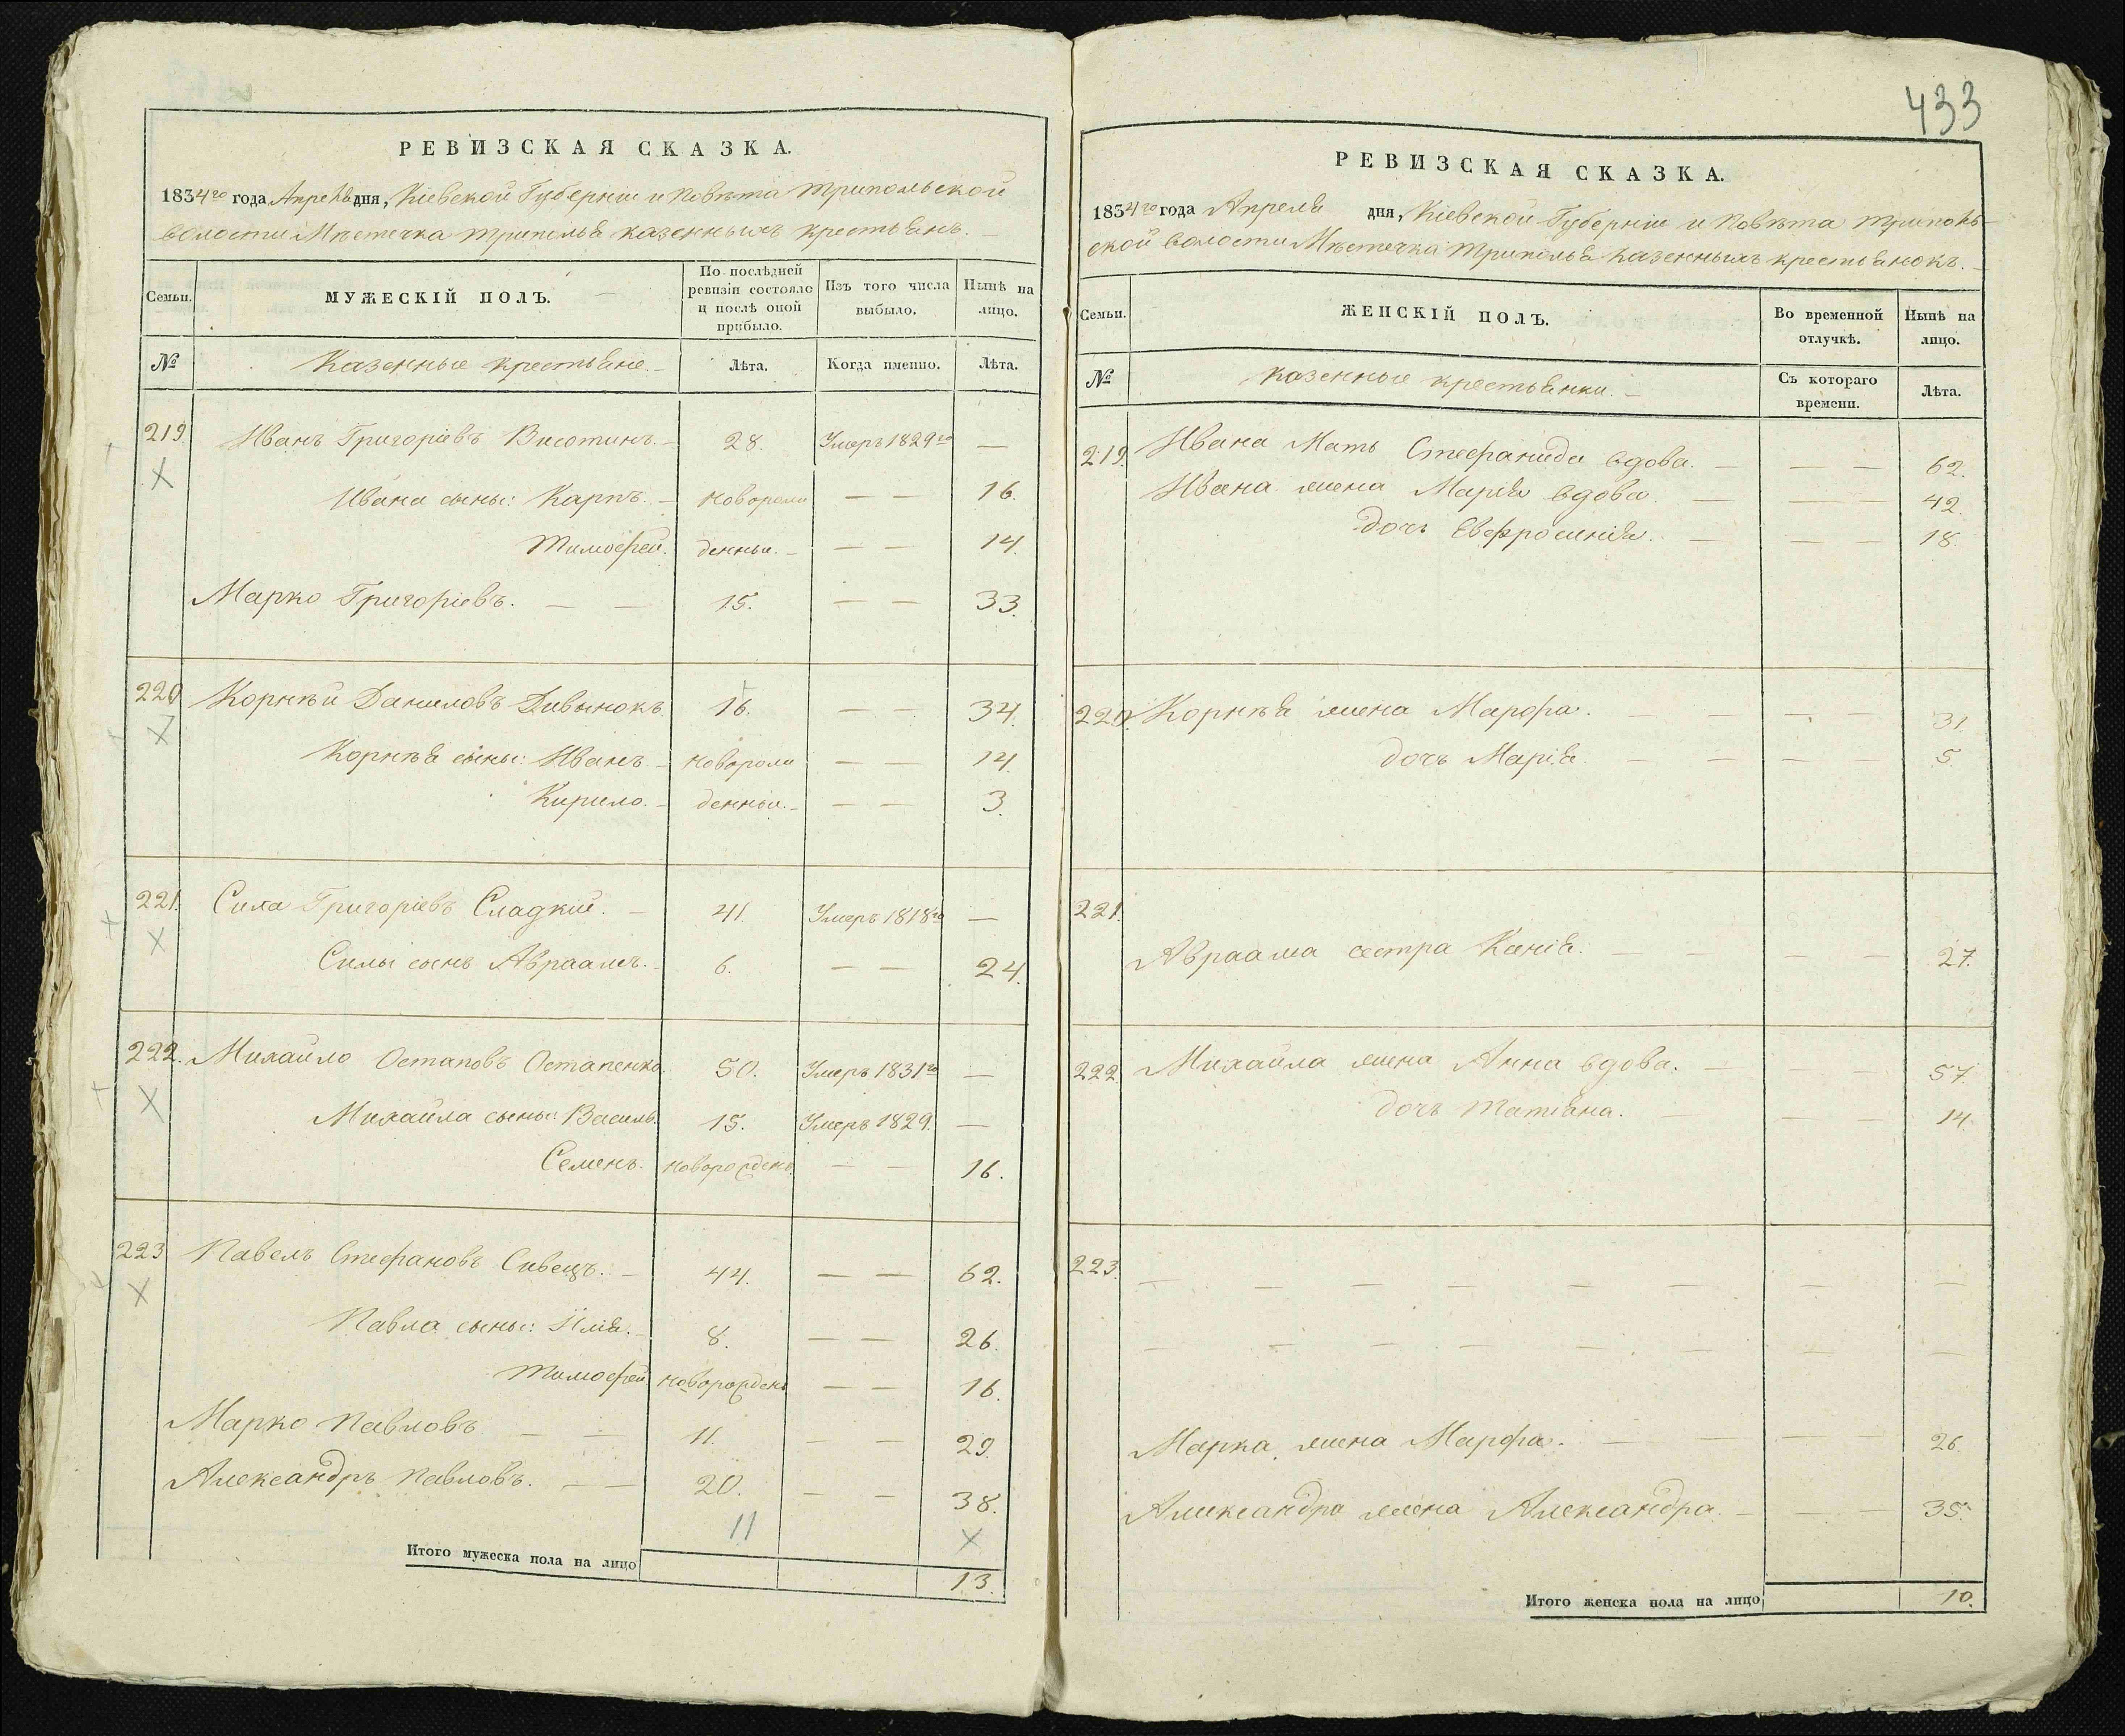 433
РЕВИЗСКАЯ СКАЗКА.
1834го года Апреля дня, Кіевской Губерніи и Повѣта Трипольской
волости Мѣстечка Триполья казенныхъ крестьянъ.
Семьи. МУЖЕСКІЙ ПОЛЪ. По послѣдней ревизіи состояло и послѣ оной прибыло. Изъ того числа выбыло. Нынѣ на лицо.
№ Казенные крестьяне. Лѣта. Когда именно. Лѣта.
219 Иванъ Григоріевъ Висотинъ. 28. Умеръ 1829го —
Ивана сыны: Карпъ. новорож — — 16.
Тимофей. денныи. — — 14.
Марко Григоріевъ. — — 15. — — 33.
220 Корнѣй Даниловъ Дивынокъ 16. — — 34.
Корнѣя сыны: Иванъ новорож — — 14.
Кирило. денныи. — — 3.
221. Сила Григоріевъ Сладкій. 41. Умеръ 1818го —
Силы сынъ Авраамъ. 6. — — 24.
222. Михайло Остаповъ Остапенко. 50. Умеръ 1831го —
Михайла сыны: Василь. 15. Умеръ 1829. —
Семенъ. новорожденъ. — — 16.
223 Павелъ Стефановъ Сивецъ. 44. — — 62.
Павла сыны: Илія. 8. — — 26.
Тимофей новорожденъ — — 16.
Марко Павловъ — — 11. — — 29.
Александръ Павловъ. — — 20. — — 38.
11
Итого мужеска пола на лицо 13.
РЕВИЗСКАЯ СКАЗКА.
1834го года Апреля дня, Кіевской Губерніи и Повѣта Триполь-
ской волости Мѣстечка Триполья казенныхъ крестьянокъ.
Семьи. ЖЕНСКІЙ ПОЛЪ. Во временной отлучкѣ. Нынѣ на лицо.
№ казенные крестьянки. Съ котораго времени. Лѣта.
219. Ивана Мать Стефанида вдова. — — — 62.
Ивана жена Марія вдова. — — — 42.
дочь Евфросинія. — — — 18.
220. Корнѣя жена Марфа. — — — — 31.
дочь Марія. — — — 5.
221.
Авраама сестра Ксенія. — — — — 27.
222. Михайла жена Анна вдова. — — 57.
дочь Татіяна. — — — 14.
223. — — — — — — — —
— — — — — — — —
Марка жена Марфа. — — — — 26.
Александра жена Александра. — — — 35.
Итого женска пола на лицо 10.